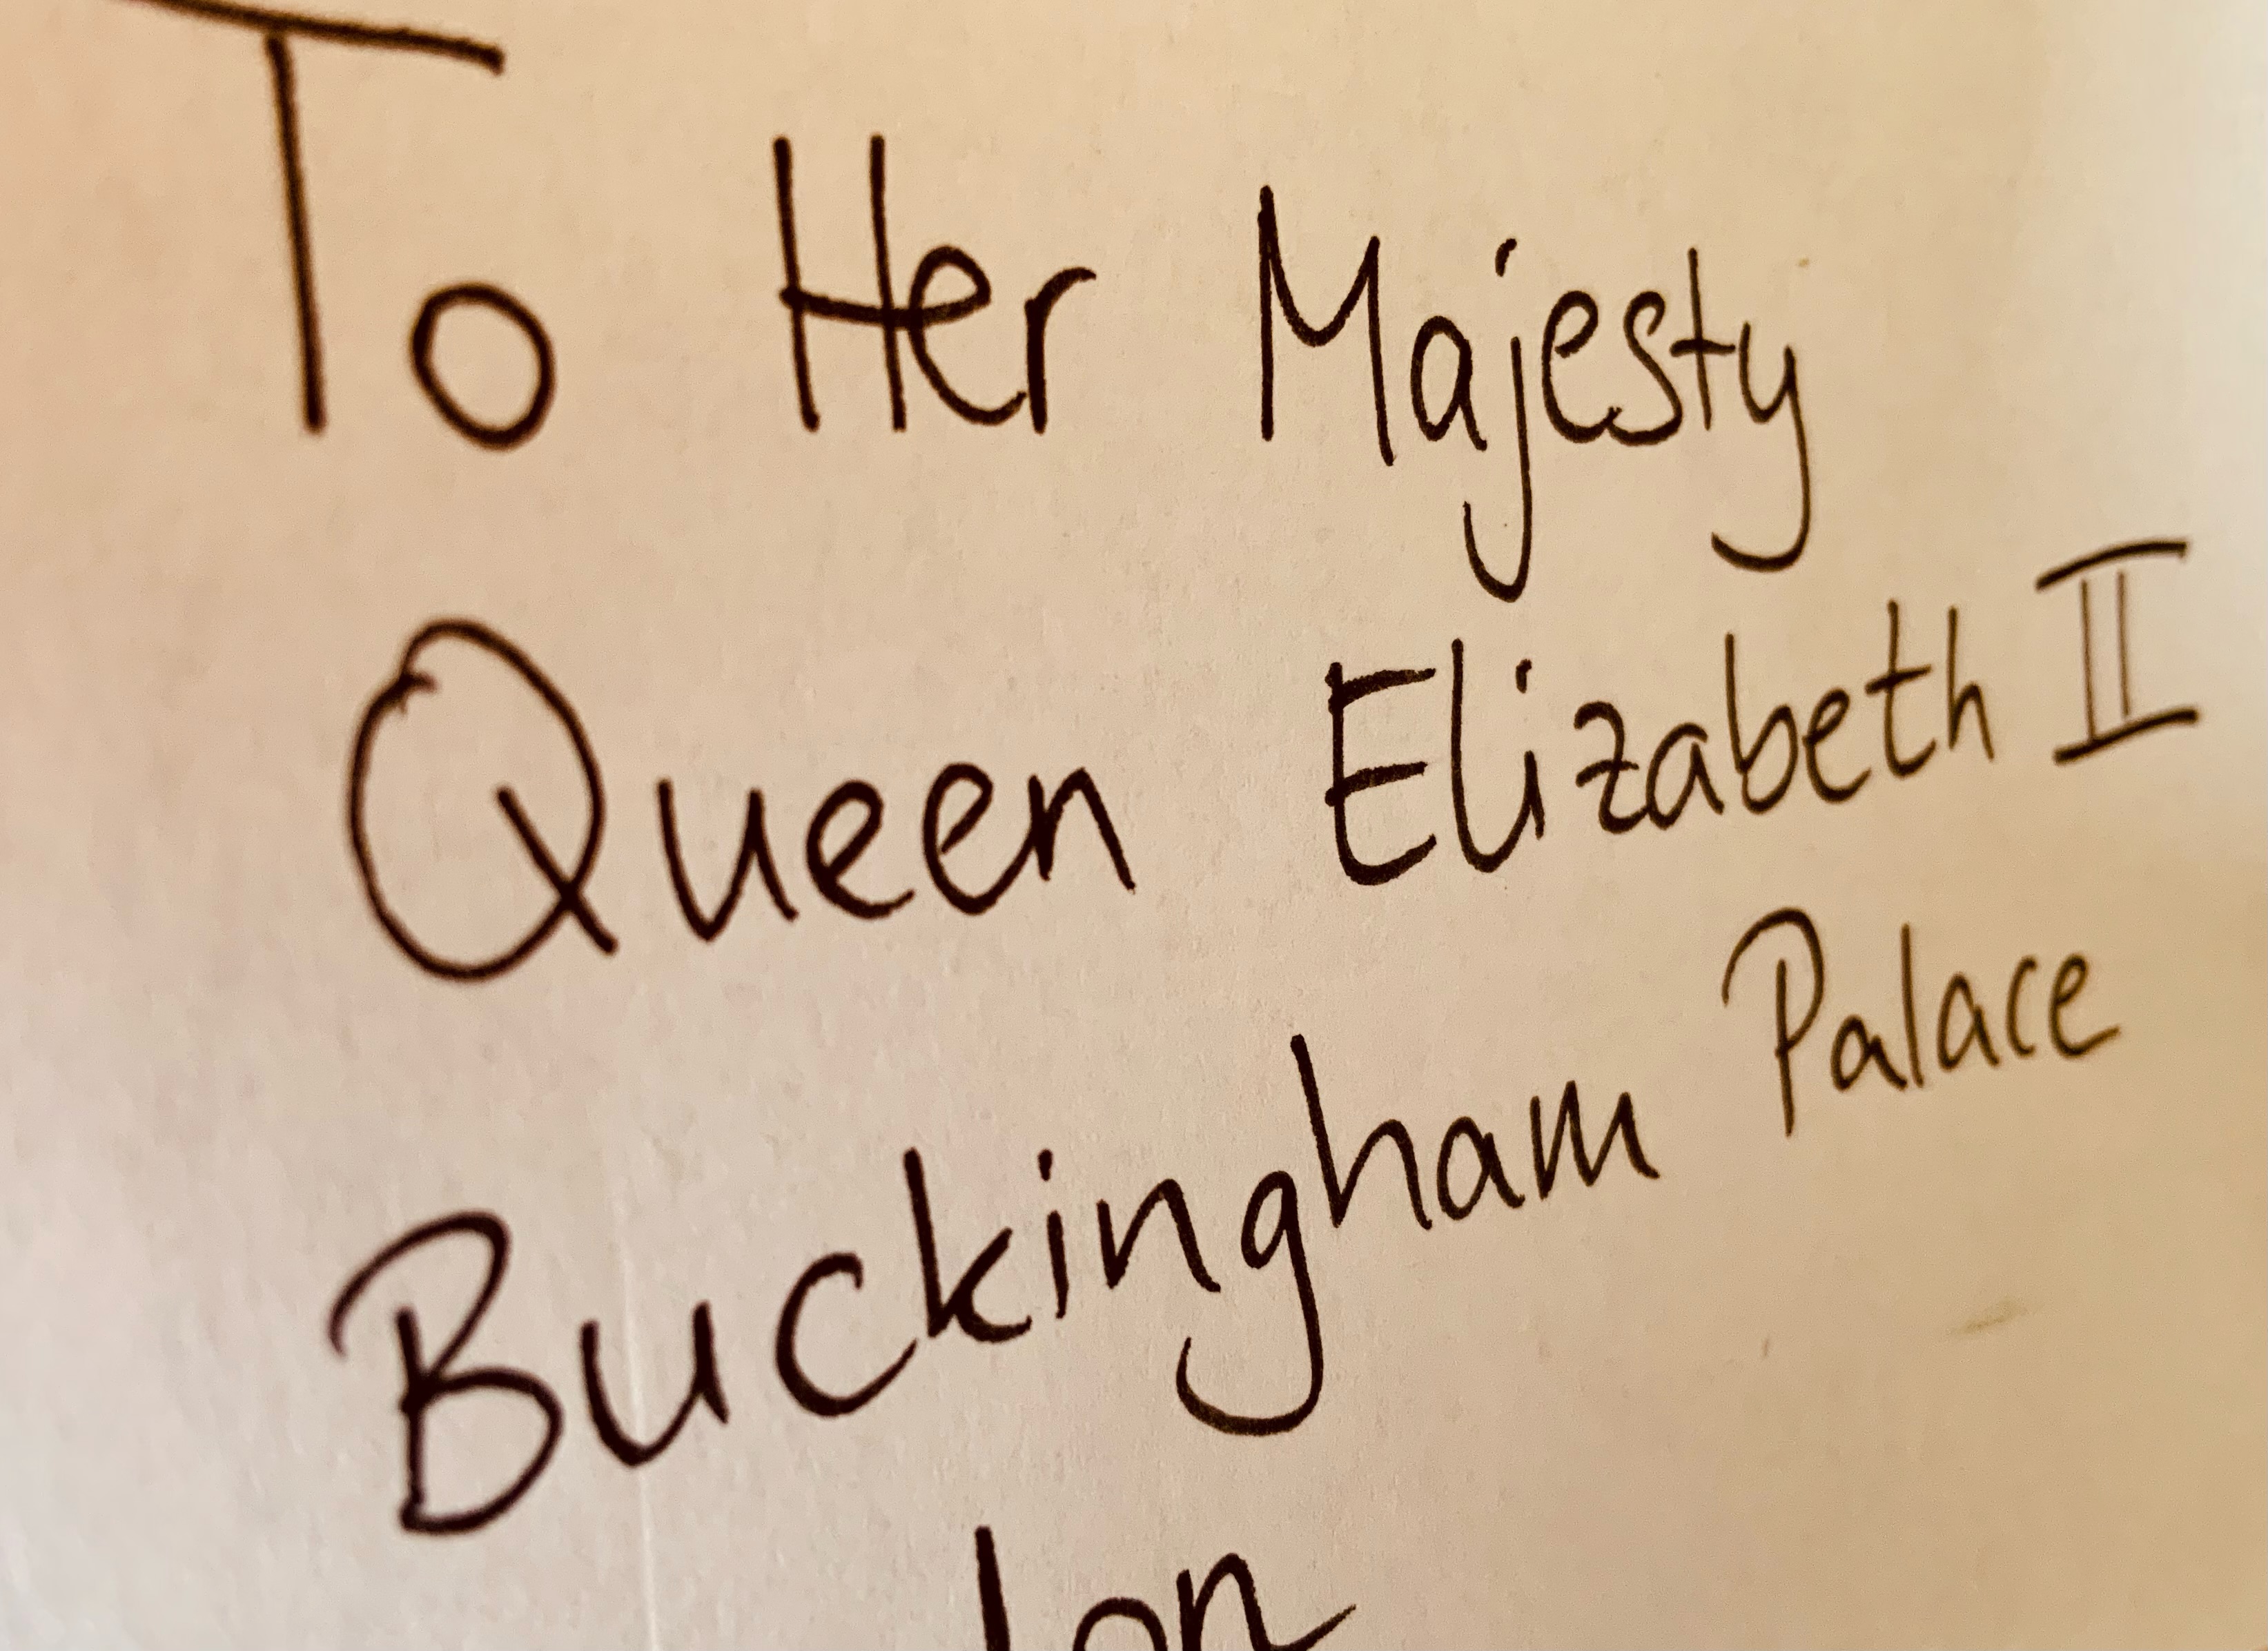 To Her Majesty
Queen Elizabeth II
Buckingham Palace